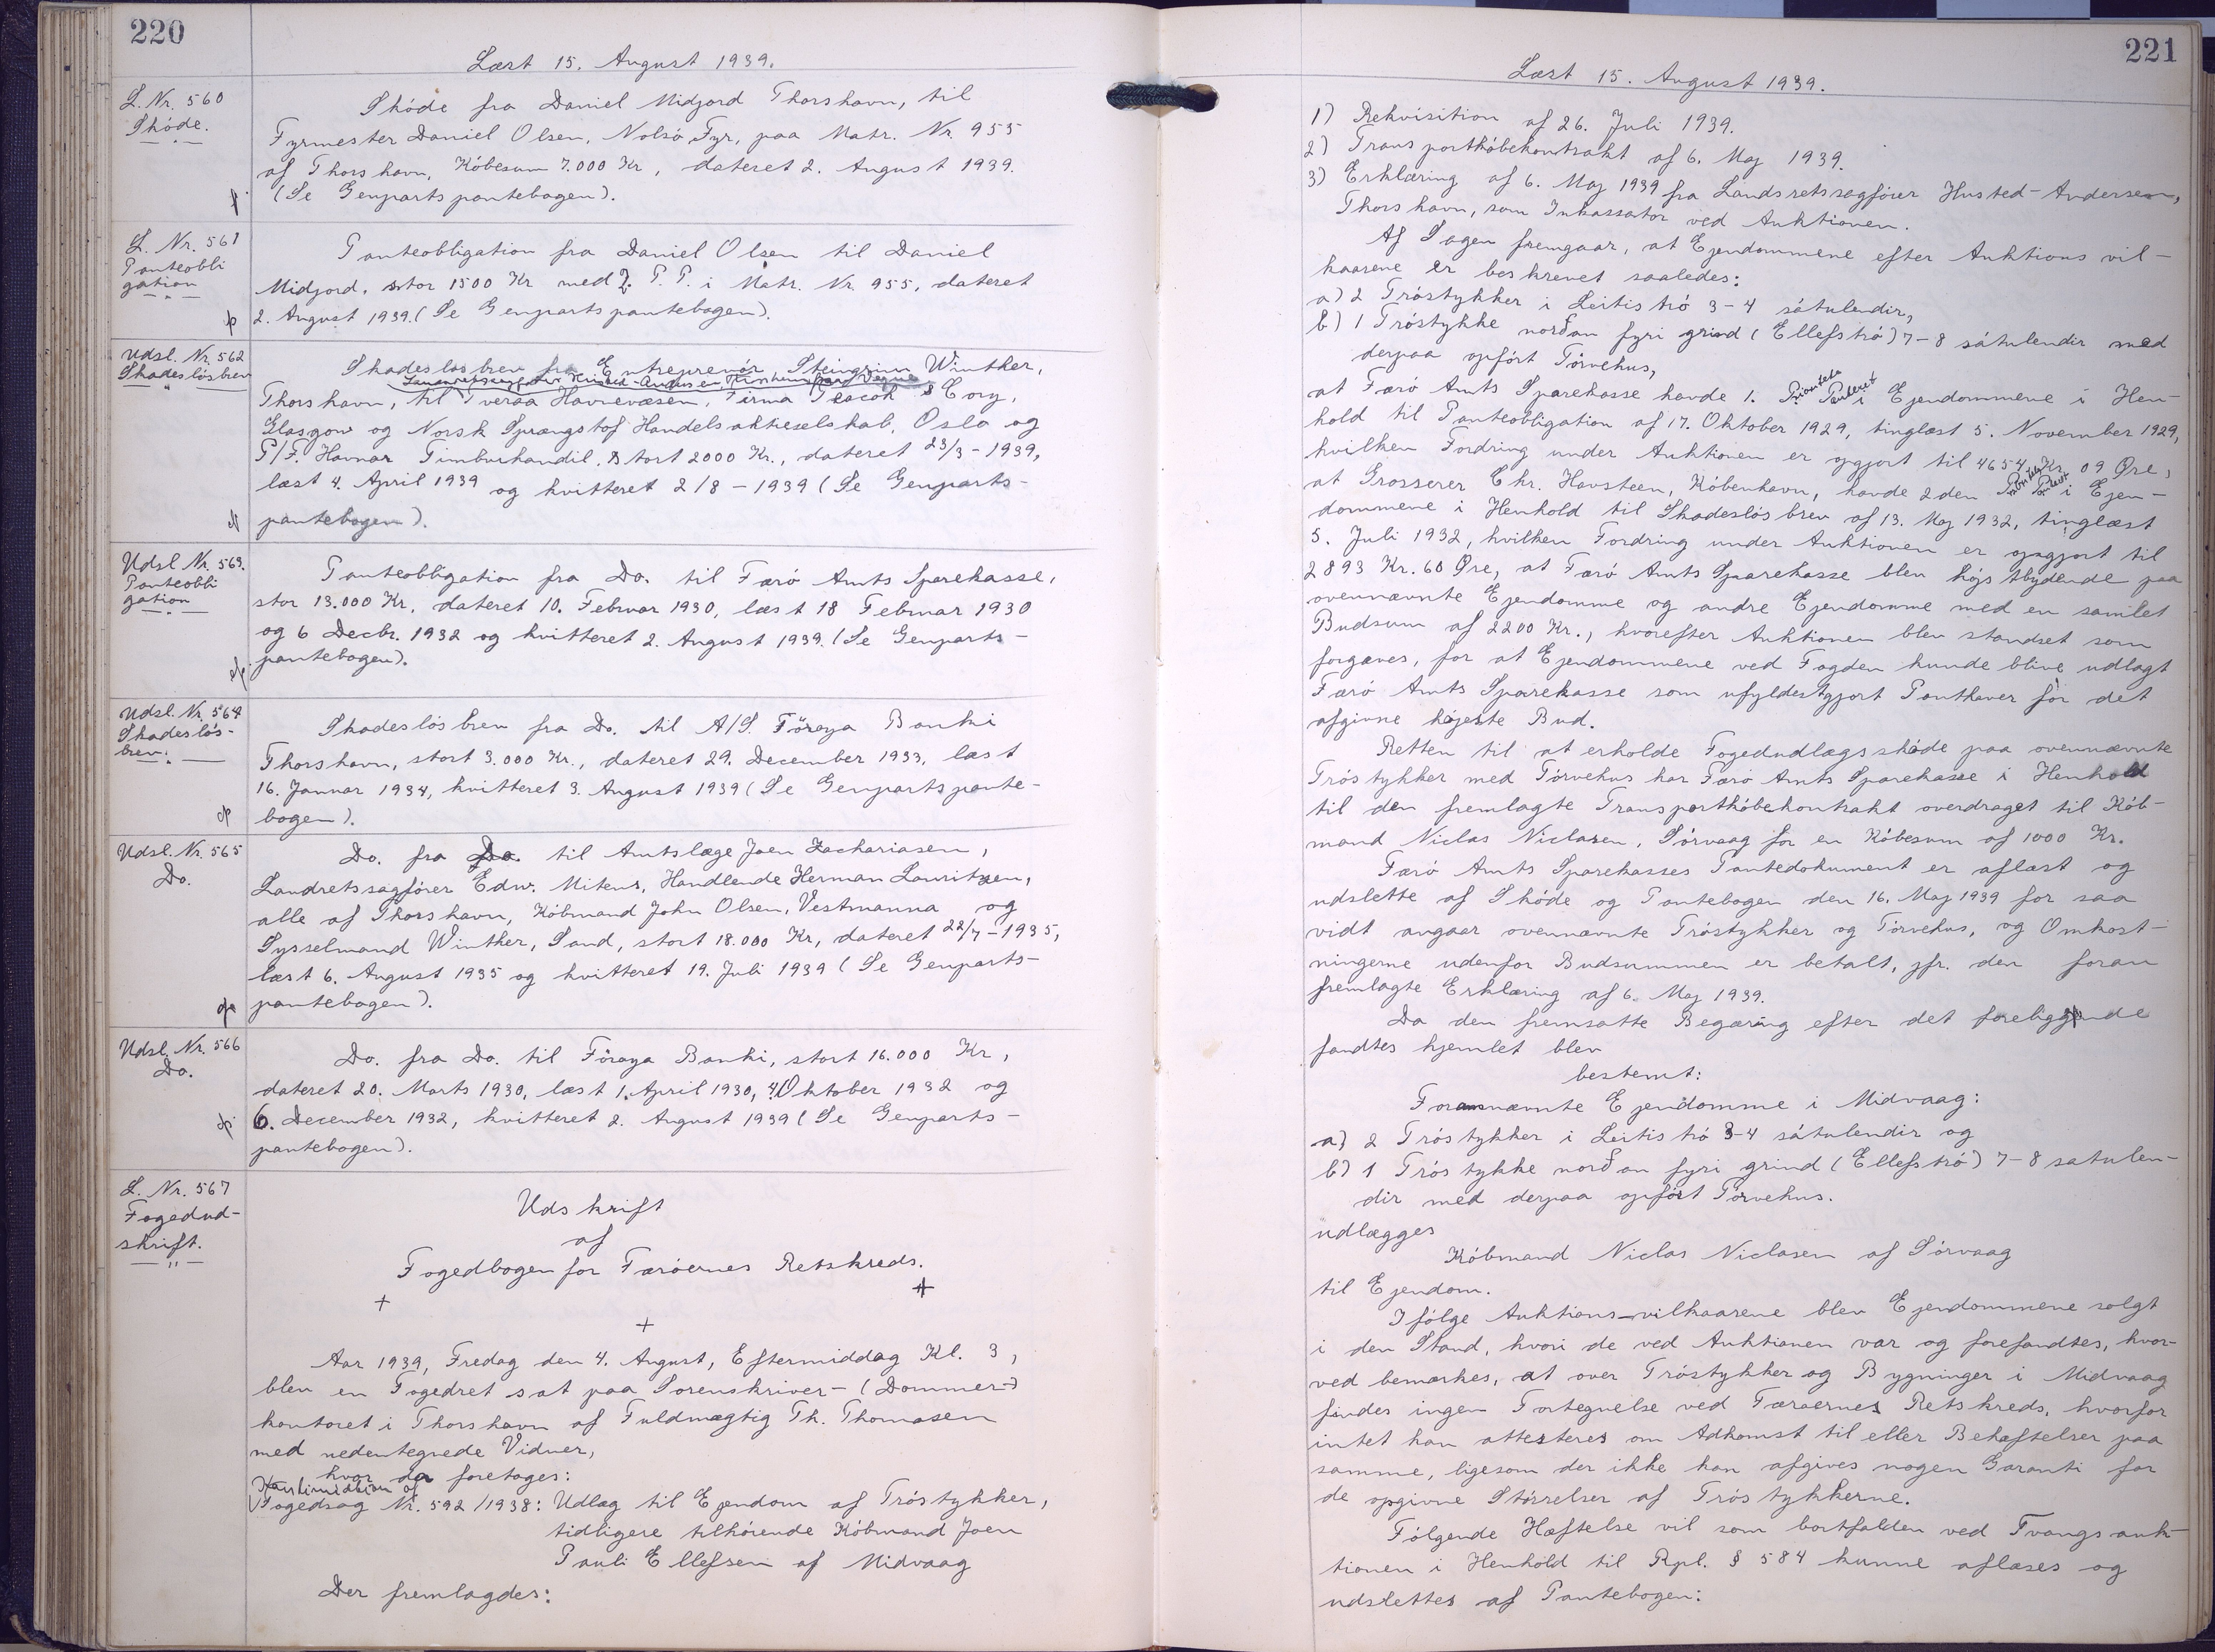 220
Læst 15. August 1939.
L. Nr. 560
Skóde.
Skóde fra Daniel Midjord Thorshavn, til
Fyrmester Daniel Olsen, Nolsó Fyr, paa Matr. Nr 955
af Thorshavn, Kóbesum 7.000 Kr, dateret 2. August 1939.
(Se Genpartspantebogen).
L. Nr. 561
Panteobli
gation
Panteobligation fra Daniel Olsen til Daniel
Midjord, stor 1500 Kr med 2. P. P. i Matr. Nr 955, dateret
2. August 1939. (Se Genpartspantebogen).
Udsl. Nr. 562
Skadeslósbrev
Skadeslosbrev fra Entreprenór Steingrim Winther,
Landsretssagfører Husted-Andersen
Thorshavn, til Tveraa Havnevæsen, Firma Peacok & Cory,
Glasgow og Norsk Sprængstof Handelsaktieselskab, Oslo og
P/F. Havnar Timburhandil, stort 2000 Kr., dateret 23/3-1939,
læst 4. April 1939 og kvitteret 2/8-1939 (Se Genparts-
pantebogen).
Udsl Nr. 563.
Panteobli
gation
Panteobligation fra Do. til Færó Amts Sparekasse,
stor 13.000 Kr, dateret 10. Februar 1930, læst 18 Februar 1930
og 6 Decbr. 1932 og kvitteret 2. August 1939. (Se Genparts-
pantebogen).
Udsl. Nr. 564
Skadeslós-
brev.
Skadeslósbrev fra Do. til A/S. Föroya Banki
Thorshavn, stort 3.000 Kr., dateret 29. December 1933, læst
16. Januar 1934, kvitteret 3. August 1939 (Se Genpartspante-
bogen).
Udsl. Nr. 565
Do.
Do. fra Do. til Amtslæge Joen Zachariasen,
Landretssagfórer Edw. Mitens, Handlende Herman Lauritzen,
alle af Thorshavn, Kóbmand John Olsen, Vestmanna og
Sysselmand Winther, Sand, stort 18.000 Kr, dateret 22/7-1935,
læst 6. August 1935 og kvitteret 19. Juli 1939 (Se Genparts-
pantebogen).
Udsl. Nr. 566
Do.
Do. fra Do. til Föroya Banki, stort 16.000 Kr,
dateret 20. Marts 1930, læst 1. April 1930, 4. Oktober 1932 og
6. December 1932, kvitteret 2. August 1939 (Se Genparts-
pantebogen).
L. Nr. 567
Fogedud-
skrift.
Udskrift
af
Fogedbogen for Færóernes Retskreds.
+ +
+
Aar 1939, Fredag den 4. August, Eftermiddag Kl. 3,
blev en Fogedret sat paa Sorenskriver- (Dommer-)
kontoret i Thorshavn af Fuldmægtig Th. Thomasen
med nedentegnede Vidner,
hvor da foretoges:
Kontinuation af
Fogedsag Nr. 592/1938: Udlæg til Ejendom af Tróstykker,
tidligere tilhórende Kóbmand Joen
Pauli Ellefsen af Midvaag
Der fremlagdes:
221
Læst 15. August 1939.
1) Rekvisition af 26. Juli 1939.
2) Transportkóbekontrakt af 6. Maj 1939.
3) Erklæring af 6. Maj 1939 fra Landsretssagfórer Husted-Andersen,
Thorshavn, som Inkassator ved Auktionen.
Af Sagen fremgaar, at Ejendommene efter Auktions vil-
kaarene er beskrevet saaledes:
a) 2 Tróstykker i Leitistró 3-4 sátulendir,
b) 1 Tróstykke norðan fyri grind (Ellefstró) 7-8 sátulendir med
derpaa opfórt Tórvehus,
at Færó Amts Sparekasse havde 1. Prioritets Panteret i Ejendommene i Hen-
hold til Panteobligation af 17. Oktober 1929, tinglæst 5. November 1929,
hvilken Fordring under Auktionen er opgjort til 4654 Kr. 09 Øre,
at Grosserer Chr. Havsteen, Kóbenhavn, havde 2den Prioritets Panteret i Ejen-
dommene i Henhold til Skadeslósbrev af 13. Maj 1932, tinglæst
5. Juli 1932, hvilken Fordring under Auktionen er opgjort til
2893 Kr. 60 Øre, at Færó Amts Sparekasse blev hójstbydende paa
ovennævnte Ejendomme og andre Ejendomme med en samlet
Budsum af 2200 Kr., hvorefter Auktionen blev standset som
forgæves, for at Ejendommene ved Fogden kunde blive udlagt
Færó Amts Sparekasse som ufyldestgjort Panthaver for det
afgivne højeste Bud.
Retten til at erholde Fogedudlægsskóde paa ovennævnte
Tróstykker med Tórvehus har Færó Amts Sparekasse i Henhold
til den fremlagte Transportkóbekontrakt overdraget til Kób-
mand Niclas Niclasen, Sórvaag for en Kóbesum af 1000 Kr.
Færó Amts Sparekasses Pantedokument er aflæst og
udslettet af Skóde og Pantebogen den 16. Maj 1939 for saa
vidt angaar ovennævnte Tróstykker og Tórvehus, og Omkost-
ningerne udenfor Budsummen er betalt, jfr. den foran
fremlagte Erklæring af 6. Maj 1939.
Da den fremsatte Begæring efter det foreliggende
fandtes hjemlet blev
bestemt:
Forannævnte Ejendomme i Midvaag:
a) 2 Tróstykker i Leitistró 3-4 sátulendir og
b) 1 Tróstykke norðan fyri grind (Ellefstró) 7-8 satulen-
dir med derpaa opfórt Tórvehus.
udlægges
Kóbmand Niclas Niclasen af Sórvaag
til Ejendom.
Ifólge Auktions-vilkaarene blev Ejendommene solgt
i den Stand, hvori de ved Auktionen var og forefandtes, hvor-
ved bemærkes, at over Tróstykker og Bygninger i Midvaag
findes ingen Fortegnelse ved Færøernes Retskreds, hvorfor
intet kan attesteres om Adkomst til eller Behæftelser paa
samme, ligesom der ikke kan afgives nogen Garanti for
de opgivne Stórrelser af Tróstykkerne.
Fólgende Hæftelse vil som bortfalden ved Tvangsauk-
tionen i Henhold til Rpl. § 584 kunne aflæses og
udslettes af Pantebogen: